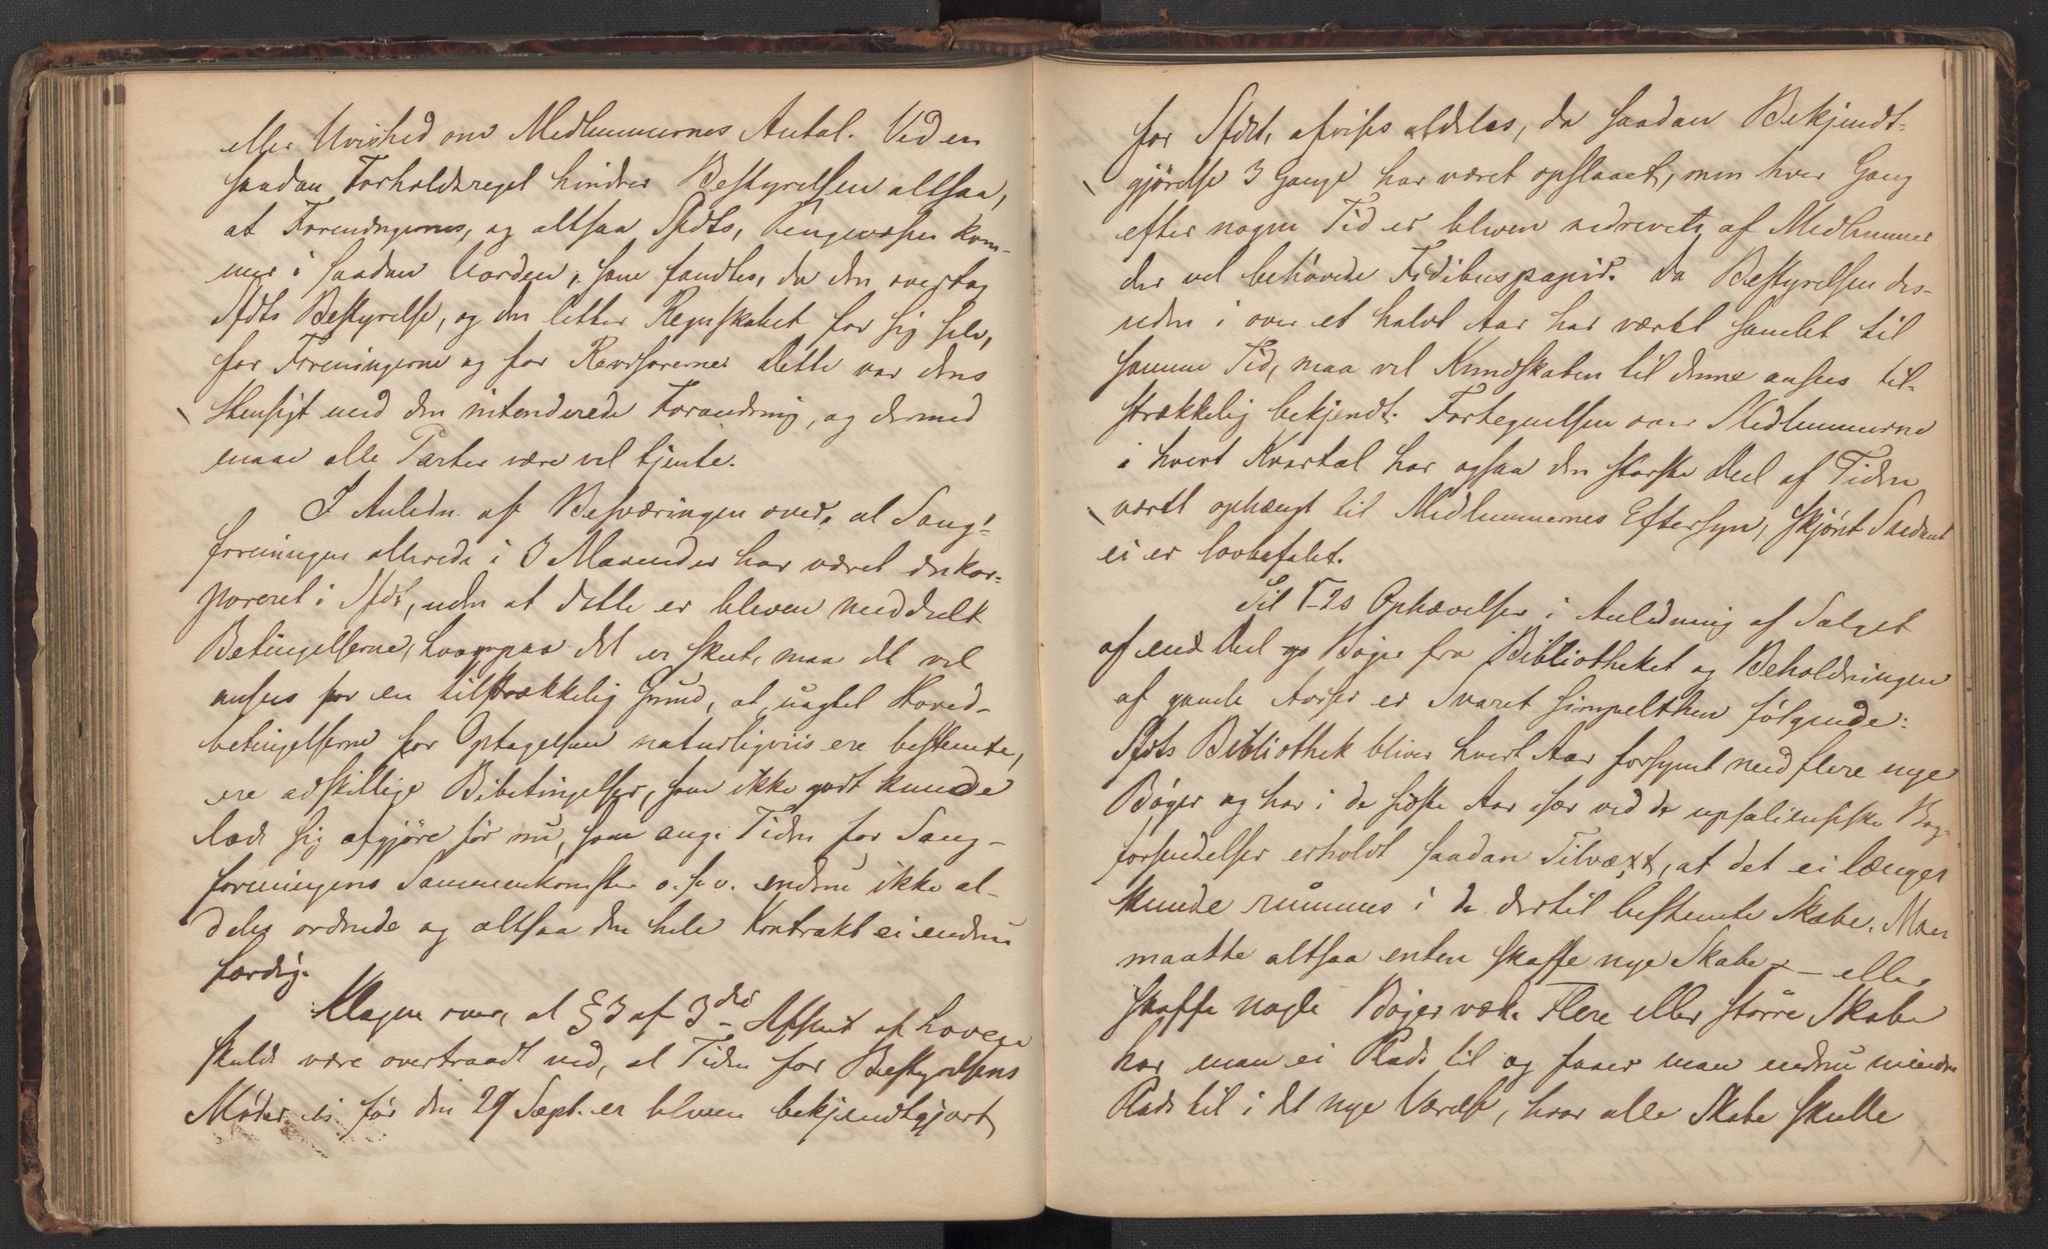 eller Uvished om Medlemmernes Antal. Ved en
saadan Forholdsregel hindrer Bestyrelsen altsaa,
at Foreningernes, og altsaa Sfdts, Pengevæsen kom-
mer i saadan Uorden, som fandtes, da den overtog
Sfdts Bestyrelse, og den letter Regnskabet for sig selv,
for Foreningerne og for Revisorerne. Dette var dens
Hensigt med den intenderede Forandring, og dermed
maae alle Parter være vel tjente.
I Anledn. af Besværingen over, at Sang-
foreningen allerede i 3 Maaneder har været inkor-
poreret i Sfdt, uden at dette er bleven meddeelt
Betingelserne, hvorpaa det er skeet, maa det vel
ansees for en tilstrækkelig Grund, at, uagtet Hoved-
betingelserne for Optagelsen naturligviis ere bestemte,
ere adskillige Bibetingelser, som ikke godt kunde
lade sig afgjøre før nu, som ang. Tiden for Sang-
foreningens Sammenkomster o. s. v. endnu ikke al-
deles ordnede og altsaa den hele Kontrakt ei endnu
færdig.
Klagen over, at § 3 af 3die Afsnit af Lovene
skulde være overtraadt ved, at Tiden for Bestyrelsens
Møder ei før den 29 Sept. er bleven bekjendtgjort
for Sfdt, afvises aldeles, da saadan Bekjendt-
gjørelse 3 Gange har været opslaaet, men hver Gang
efter nogen Tid er bleven nedrevet af Medlemmer
der vel behøvede Fidibuspapir. Da Bestyrelsen des-
uden i over et halvt Aar har været samlet til
samme Tid, maa vel Kundskaben til denne ansees til-
strækkelig bekjendt. Fortegnelsen over Medlemmerne
i hvert Kvartal har ogsaa den største Deel af Tiden
været ophængt til Medlemmernes Eftersyn, skjønt Saadant
ei er lovbefalet.
Til Ophævelser i Anledning af Salget
af en Deel Bøger fra Bibliotheket og Beholdningen
af gamle Aviser er Svaret simpelthen følgende:
Sfdts Bibliothek bliver hvert Aar forsynet med flere nye
Bøger og har i de sidste Aar især ved de upsaliensiske Bog-
forsendelser erholdt saadan Tilvæxt, at det ei længer
kunde rummes i de dertil bestemte Skabe. Man
maatte altsaa enten skaffe nye Skabe – eller
skaffe nogle Bøger væk. Flere eller større Skabe
har man ei Plads til og faaer man endnu mindre
Plads til i det nye Værelse, hvor alle Skabe skulle